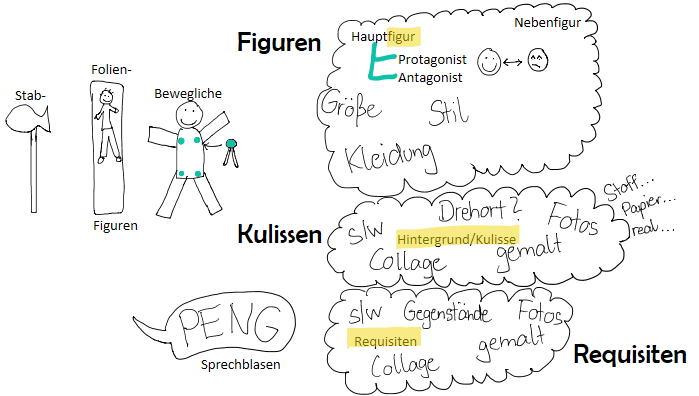 Figuren
Hauptfigur
Nebenfigur
Protagonist
Antagonist
Größe
Stil
Kleidung
Stab-
Folien-
Bewegliche
Figuren
Kulissen
s/w
Drehort?
Fotos
Hintergrund/Kulisse
Collage
gemalt
Stoff...
Papier...
real...
PENG
Sprechblasen
s/w
Gegenstände
Fotos
Requisiten
gemalt
Collage
Requisiten